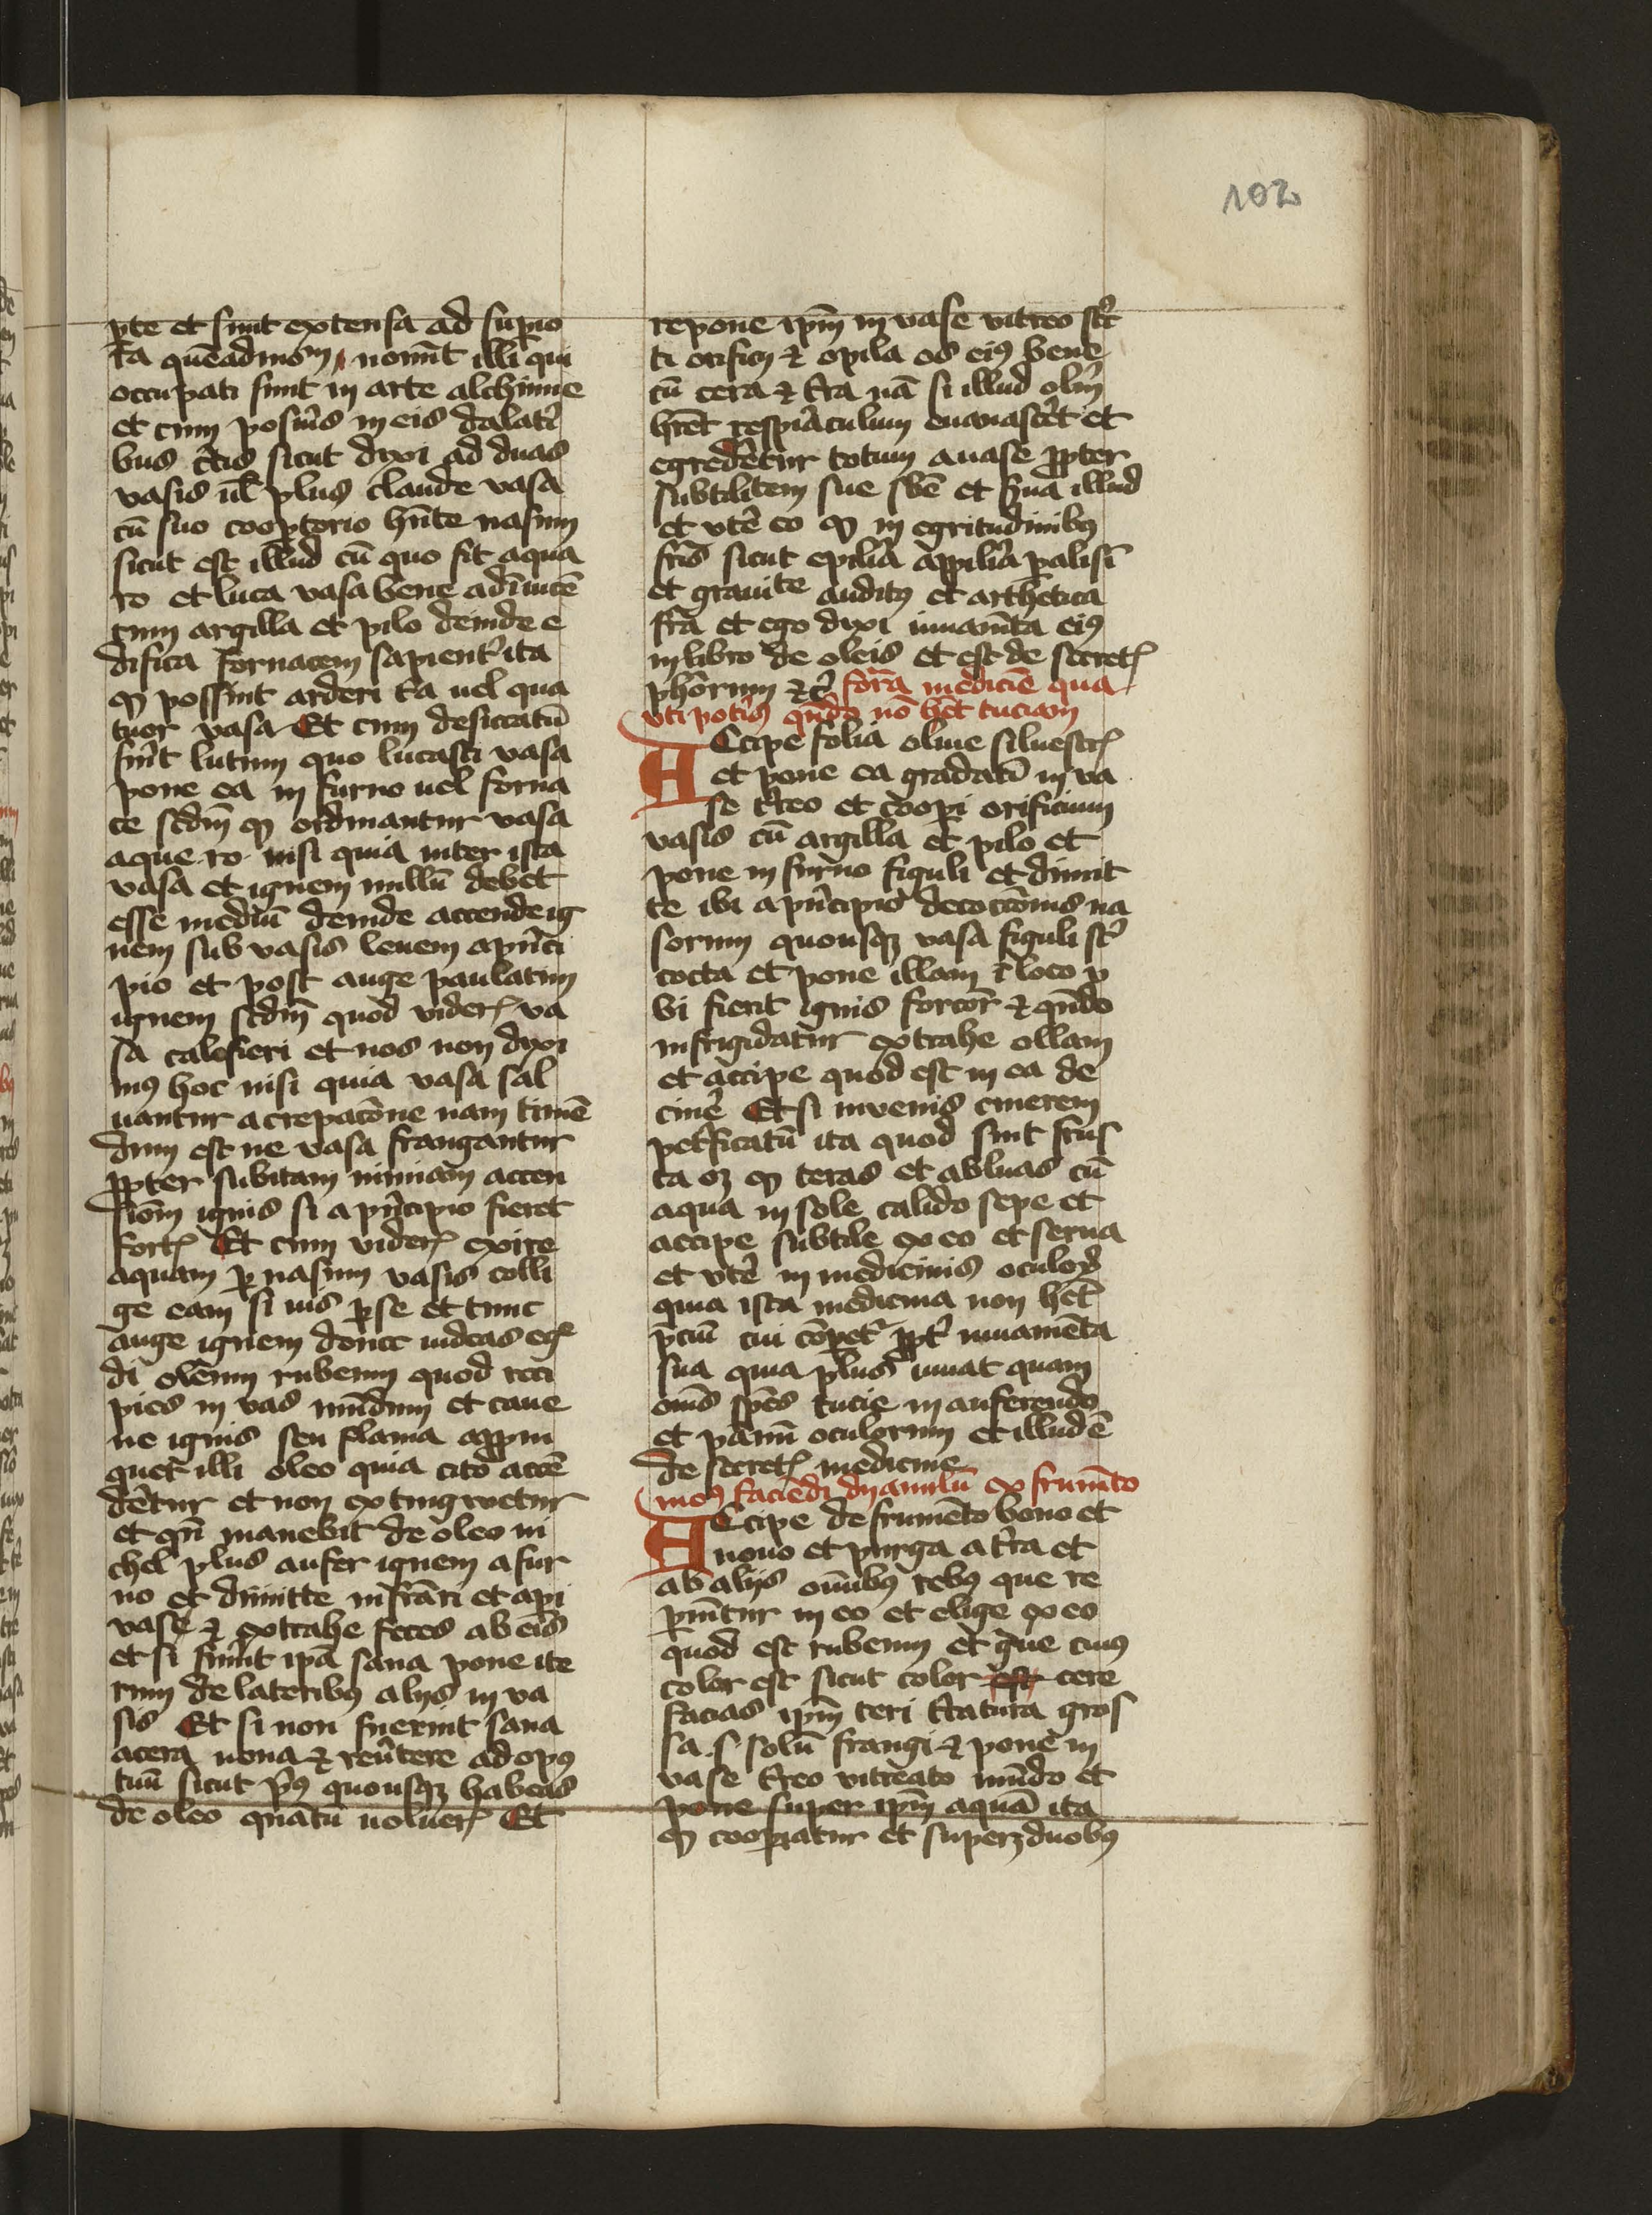 102
pte et sint extensa ad supio
ra quēadmōm nonūt illi qui
occupati sunt in arte alchimie
et cum posuīs in eis dalatī
bus c̄tis sicut dixi ad duas
vasis ul̄ plus claude vasa
cū suo coop̄torio hn̄te nasum
sicut est illud cū quo fit aqua
ro et luta vasa bene adīuicē
cum argilla et pilo deinde e
difica fornacem sapient̄ ita
ꝙ possint arderi t̄a uel qua
tuor vasa Et cum desiccatū
fūit lutum quo lutasti vasa
pone ea in furno uel forna
ce scdm̄ ꝙ ordinantur vasa
aque ro nisi quia inter ista
vasa et ignem nullū debet
esse mediū deinde accende ig
nem sub vasis leuem a pn̄ci
pio et post auge paulatim
ignem scdm̄ quod viderꝭ va
sa calefieri et nos non dixi
mꝰ hoc nisi quia vasa sal
uantur a crepatōne nam timē
dum est ne vasa frangantur
ꝓpter subitam nimiam accen
siōm ignis si a pn̄cipio fieret
fortꝭ Et cum viderꝭ exire
aquam ꝑ nasum vasis colli
ge eam si uis ꝑ se et tunc
auge ignem donec uideas eḡ
di olēum rubeum quod reci
pies in vas mūdum et caue
ne ignis seu flama appin
quet illi oleo quia cito accē
dētur et non extingwetur
et qn̄ manebit de oleo ni
chel plus aufer ignem a fur
no et dimitte infrāri et api
vase ⁊ extrahe feces ab eis
et si fūint ip̄a sana pone ite
rum de lateribꝰ alijs in va
sis Et si non fuerint sana
accera noua ⁊ reūtere ad opꝰ
tuū sicut pꝰ quousqꝫ habeas
de oleo quātū uoluerꝭ Et
repone ip̄m in vase vitreo stī
ti orificij ⁊ opila os eiꝰ bene
cū cera ⁊ t̄ra nā si illud olm̄
hr̄et respiāculum euanascēt et
egredētur totum a vase ꝓpter
subtilitem sue sbē et s̄ua illud
et vtē eo ꝙ in egritudinibꝰ
fris̄ sicut epiliā appiliā palisī
et grauite auditꝰ et arthetica
frā et ego dixi iuuamt̄a eiꝰ
in libro de oleis et est de secretꝭ
phōrum ⁊c̄ forā mediciē qua
vti potīs qn̄do nō hēt tuciam
ACcipe folia oliue siluestꝭ
et pone ea gradatī in va
se t̄reo et coopi orificium
vasis cū argilla et pilo et
pone in furno figuli et dimit
te ibi a pn̄cipio decoctōnis ua
sorum quousqꝫ vasa figuli st̄
cocta et pone illam ī loco v
bi fierit ignis forcōr ⁊ qn̄do
infrigidatur extrahe ollam
et accipe quod est in ea de
cinē Et si invenis cinerem
petficatū ita quod sint frus
ta oꝫ ꝙ teras et abluas cū
aqua in sole calido sepe et
accipe subtile ex eo et serua
et vtē in medicinis oculoꝝ
quia ista medicina non het̄
pciū cui cōpet̄ ꝓpt̄ iuuamēta
sua quia plus iuuat quam
om̄s spēs tucie in auferendo
et pānū oculorum et illud ē
de secretꝭ medicine
modꝰ faciēdi amilū ex frumēto
ACcipe de frumēto bono et
nouo et purga a t̄ra et
ab alijs om̄ibꝰ rebꝰ que re
ꝑiūtur in eo et elige ex eo
quod est rubeum et ḡue cuiꝰ
color est sicut color est cere
facias ip̄m teri t̄tatura gros
sa .s. solū frangi ⁊ pone in
vase t̄reo vitreato mūdo et
pone super ip̄m aquā ita
ꝙ coopiatur et superꝫ duobꝰ